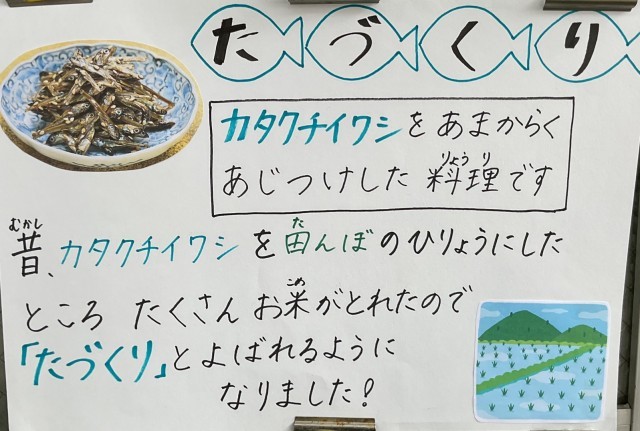 たづくり
カタクチイワシをあまからく
あじつけした料理です
りょうり
昔、カタクチイワシを田んぼのひりょうにした
むかし
た
ところ たくさんお米がとれたので
こめ
「たづくり」とよばれるように
なりました!